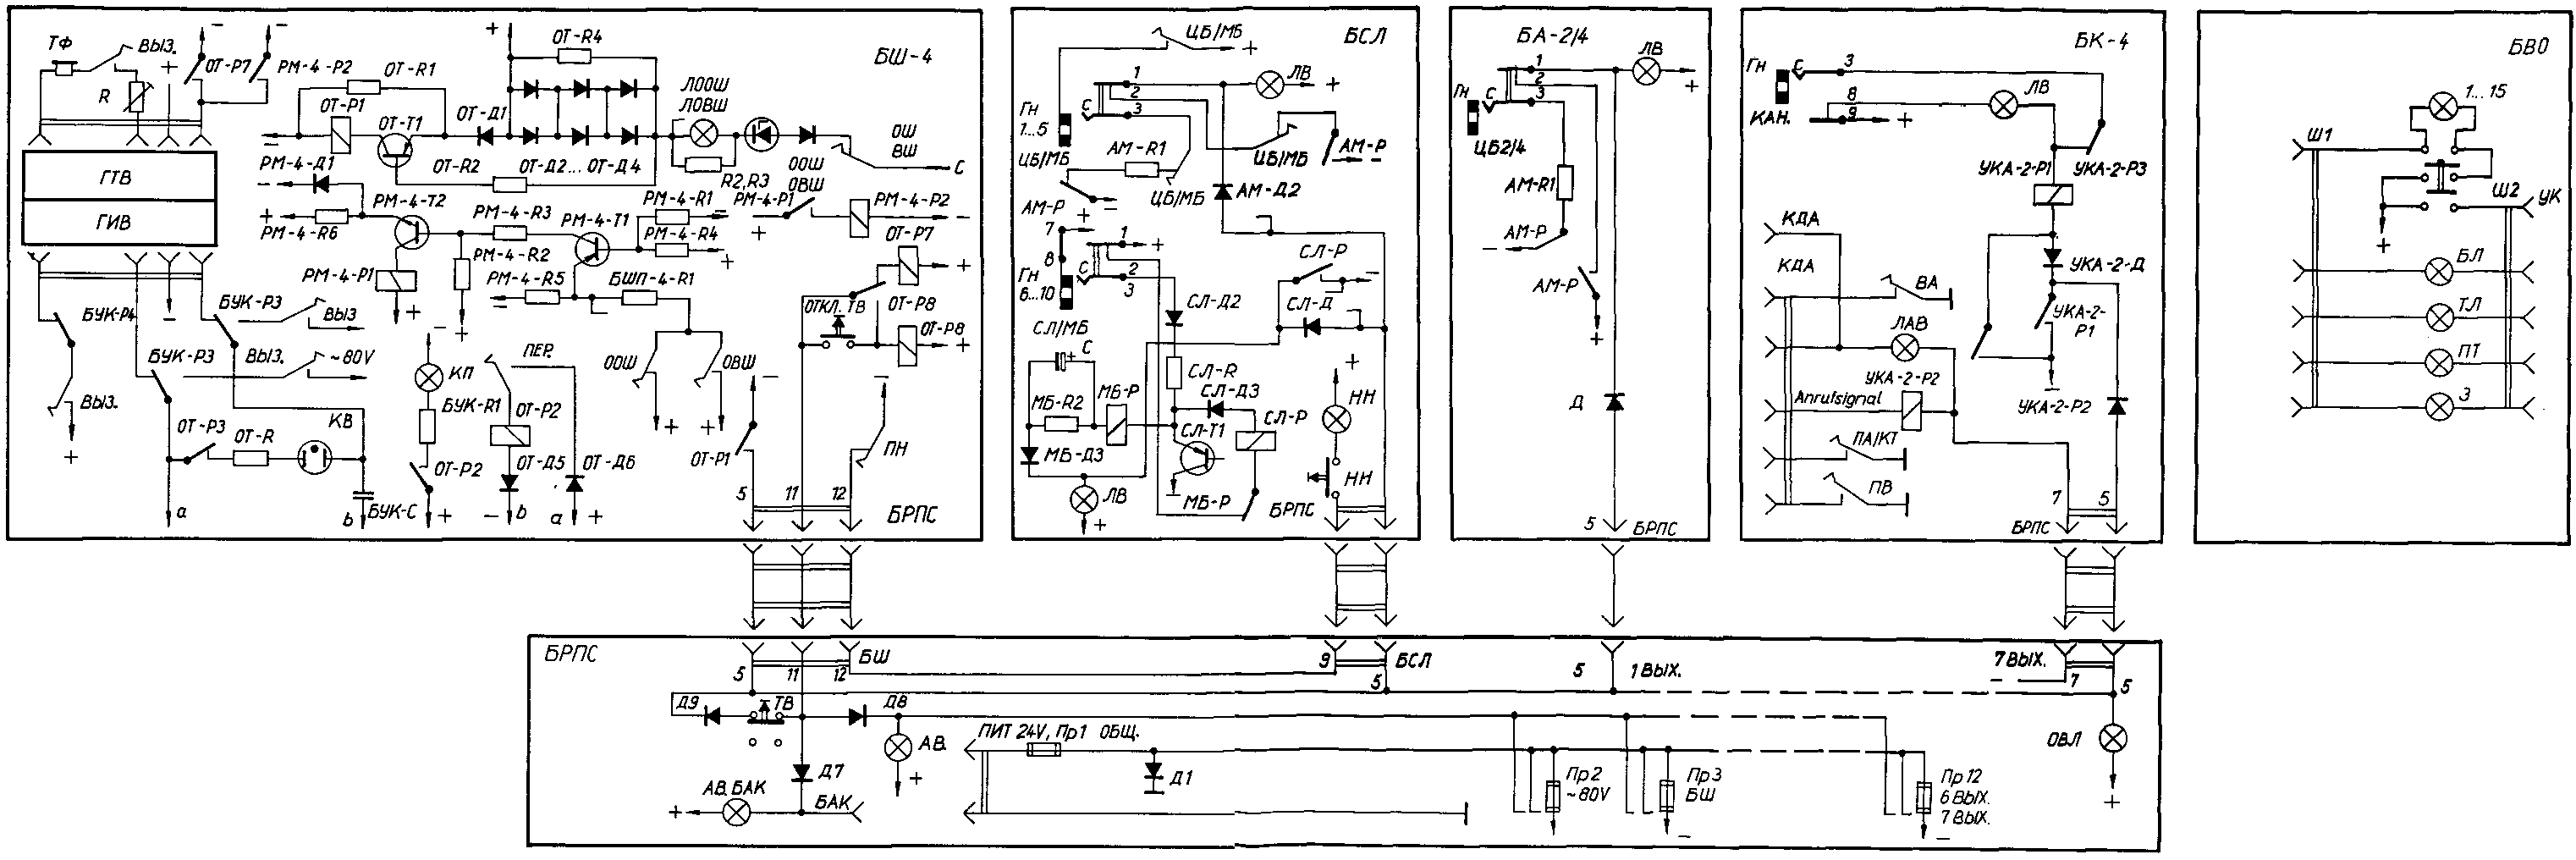 БШ-4
ТФ
ВЫЗ.
+
-
-
ОТ-Р7
РМ-4-Р2
R
ОТ-R1
ОТ-Р1
ОТ-Т1
ОТ-Д1
+
ОТ-R4
ЛООШ
ЛОВШ
ОШ
ВШ
С
ООШ
ОВШ
R2,R3
ОТ-R2
ОТ-Д2...ОТ-Д4
ГТВ
ГИВ
РМ-4-Д1
-
РМ-4-Т2
+
РМ-4-R6
РМ-4-R3
РМ-4-Т1
РМ-4-R1
-
РМ-4-R4
+
РМ-4-Р1
+
РМ-4-Р2
-
ОТ-Р7
+
РМ-4-Р1
+
РМ-4-R2
+
РМ-4-R5
БШП-4-R1
ОТКЛ. ТВ
ОТ-Р8
ОТ-Р8
+
БУК-Р4
ВЫЗ.
+
БУК-Р3
ВЫЗ
-
БУК-Р3
ВЫЗ.
~80V
ОТ-Р3
ОТ-R
КВ
БУК-С
a
b
-
КП
БУК-R1
ОТ-Р2
+
ПЕР.
ОТ-Р2
ОТ-Д5
ОТ-Д6
- b
a +
ООШ
+
ОВШ
+
-
ОТ-Р1
-
ПН
5
11
12
БРПС
БСЛ
ЦБ/МБ
+
1
2
3
С
ЛВ
+
Гн
1...5
ЦБ/МБ
АМ-R1
ЦБ/МБ
АМ-Р
-
АМ-Р
-
ЦБ/МБ
АМ-Д2
+
7
8
1
+
2
3
С
Гн
6...10
СЛ/МБ
СЛ-Р
-
СЛ-Д2
СЛ-Д
+ С
СЛ-R
СЛ-Д3
МБ-R2
МБ-Р
СЛ-Р
СЛ-Т1
МБ-Д3
-
МБ-Р
ЛВ
+
+
НН
НН
БРПС
БА-2/4
ЛВ
+
1
2
3
Гн
С
ЦБ2/4
АМ-R1
АМ-Р
-
АМ-Р
+
Д
5
БРПС
БК-4
Гн
С
3
8
9
КАН.
+
ЛВ
УКА-2-Р1
УКА-2-Р3
КДА
КДА
УКА-2-Д
ВА
УКА-2-
Р1
-
ЛАВ
УКА-2-Р2
Anrufsignal
УКА-2-Р2
ПА/КТ
ПВ
7
5
БРПС
БВО
1...15
Ш1
Ш2
УК
+
БЛ
ТЛ
ПТ
З
БРПС
5
11
12
БШ
9
БСЛ
5
5
1 ВЫХ.
7 ВЫХ.
-
7
5
Д9
ТВ
Д8
АВ.
+
Д7
АВ.БАК
+
БАК
ПИТ 24V, Пр1 ОБЩ.
Д1
Пр2
~80V
Пр3
БШ
-
Пр12
6 ВЫХ.
7 ВЫХ.
-
ОВЛ
+